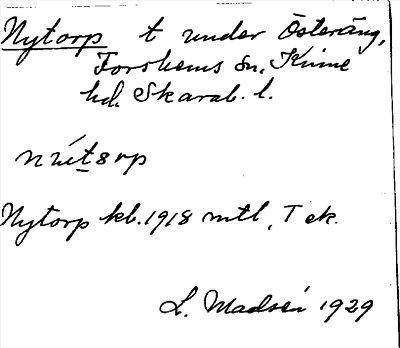 Nytorp t under Österäng,
Forshems sn, Kinne
hd. Skarab. l.
Nytorp kb. 1918 mtl, T ek.
L. Madsén 1929